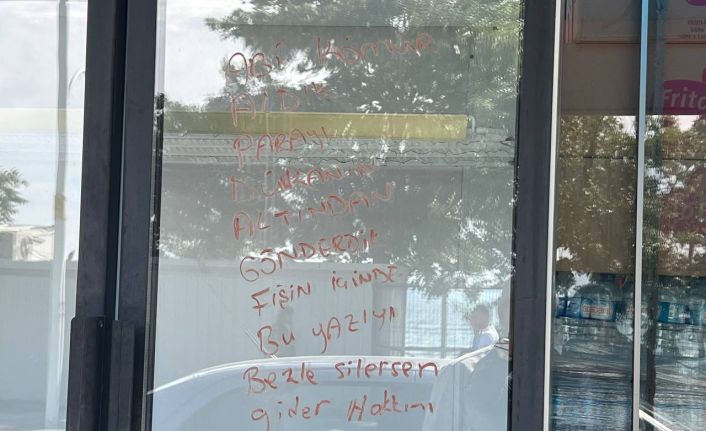 ABİ KÖMÜR
ALDIK
PARAYI
DÜKKANIN
ALTINDAN
GÖNDERDİK
FİŞİN İÇİNDE
BU YAZIYI
Bezle silersen
gider Hakkını
Frito